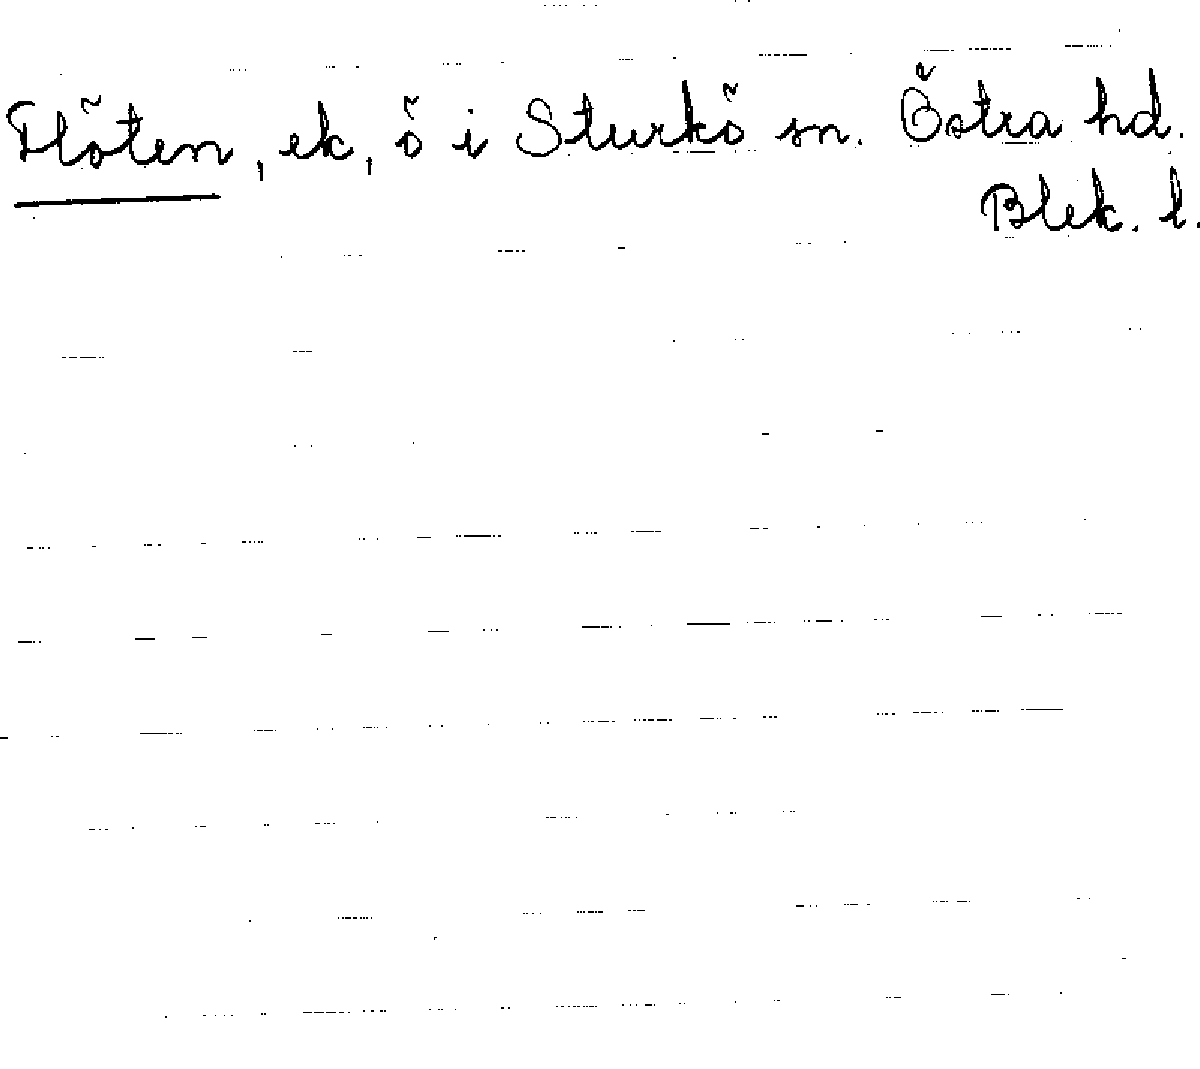 Flöten, ek, ö i Sturkö sn. Östra hd.
Blek. l.